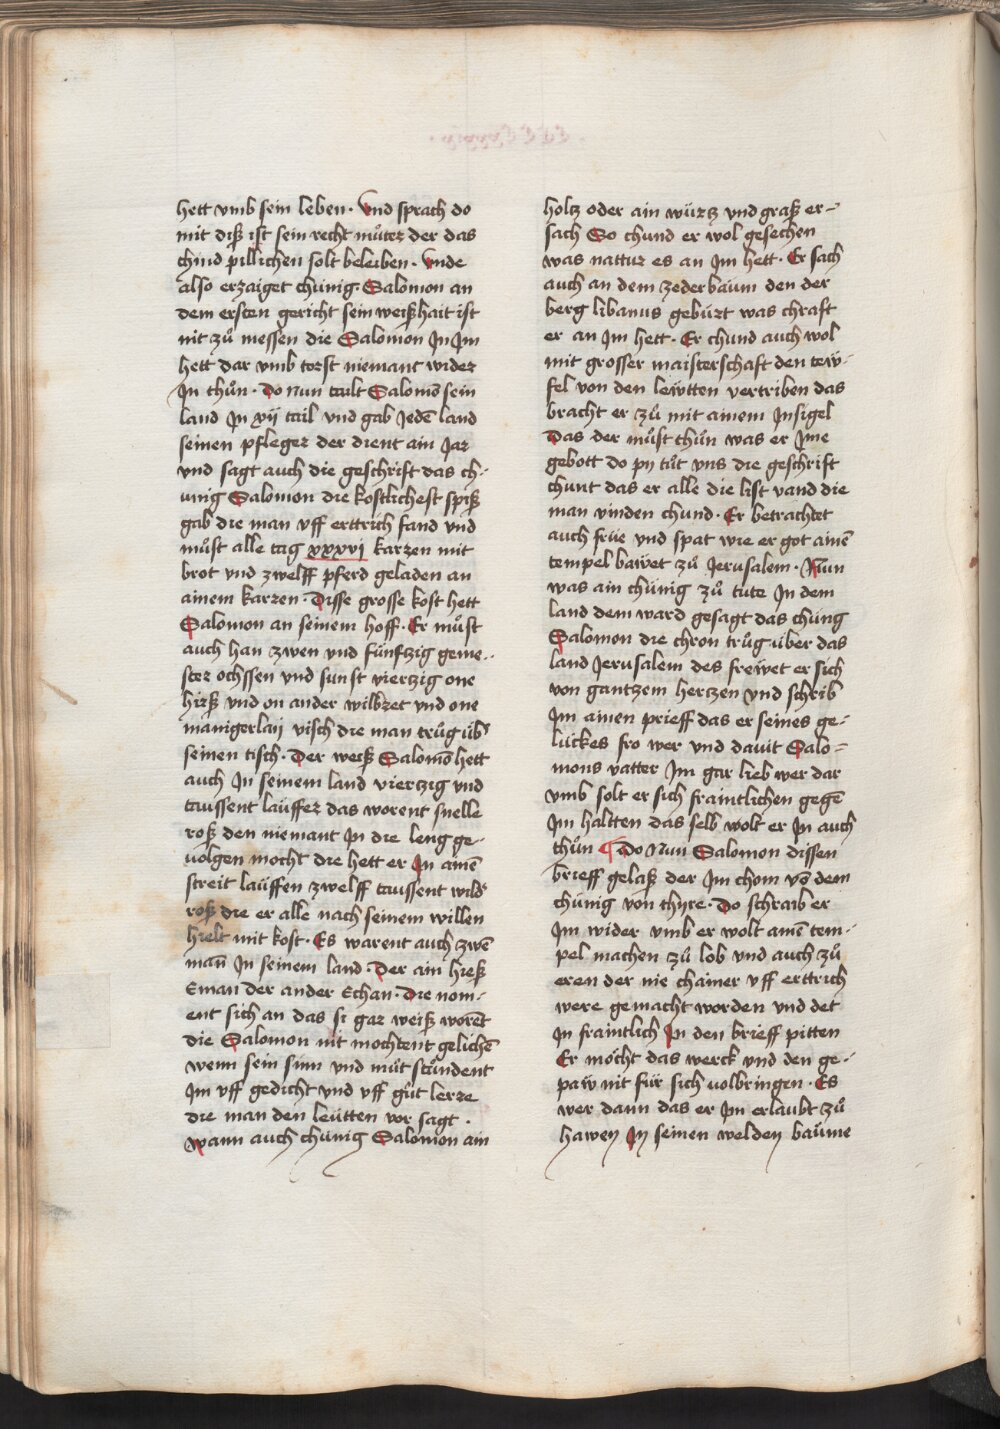 hett vmb sein leben · Vnd sprach do
mit diß ist sein recht můter der das
chind pillichen solt beleiben · Vnde
also erzaiget chünig · Salomon an
dem ersten gericht sein weißhait ist
nit zů messen die Salomon Jn Jm
hett dar vmb torst niemant wider
Jn thůn · Do Nun tailt Salomō sein
land Jn xij tail vnd gab Jedē land
seinen pfleger der dient ain Jar
vnd sagt auch die geschrift das ch-
ünig Salomon die kostlichest spiß
gab die man vff erttrich fand vnd
můst alle tag xxxvi karzen mit
brot vnd zwelff pferd geladen an
ainem karzen · Disse grosse kost hett
Salomon an seinem hoff · Er můst
auch han zwen vnd fünfzig geme-
ster ochssen vnd sunst viertzig one
hirß vnd on ander wilbret vnd one
manigerlaÿ visch die man trůg üb
seinen tisch · Der weiß Salomō hett
auch Jn seinem land viertzig vnd
taussent lauffer das worent snelle
roß den niemant Jn die leng ge-
volgen mocht die hett er Jn amē
streit lauffen zwelff taussent wild
roß die er alle nach seinem willen
hielt mit kost · Es warent auch zwē
man Jn seinem land · Der ain hieß
Eman der ander Echan · Die nom-
ent sich an das si gar weiß worēt
die Salomon nit mochtent gelichē
wenn sein sinn vnd můt stůndent
Jm vff gedicht vnd vff gůt lerze
die man den leütten vor sagt ·
wann auch chünig Salomon ain
holtz oder ain würtz vnd graß er-
sach So chund er wol gesechen
was nattur es an Jm hett · Er sach
auch an dem zederbaum den der
berg libanus gebürt was chraft
er an Jm hett · Er chund auch wol
mit grosser maisterschaft den tew-
fel von den lewtten vertriben das
bracht er zů mit ainem Jnsigel
Das der můst thůn was er Jme
gebott do pÿ tůt vns die geschrift
chunt das er alle die list vand die
man vinden chund · Er betrachtet
auch früe vnd spat wie er got ainē
tempel bawet zů Jerusalem · Nun
was ain chünig zů tute Jn dem
land dem ward gesagt das chüng
Salomon die chron trůg über das
land Jerusalem des frewet er sich
von gantzem hertzen vnd schrib
Jm ainen prieff das er seines ge-
lückes fro wer vnd dauit Salo-
mons vatter Jm gar lieb wer dar
vmb solt er sich fraintlichen gegē
Jm haltten das selb wolt er Jn auch
thůn Do Nun Salomon dissen
brieff gelaß der Jm chom vō dem
chünig von thyre · Do schraib er
Jm wider vmb er wolt ainē tem-
pel machen zů lob vnd auch zů
eren der nie chainer vff erttrich
were gemacht worden vnd det
Jn fraintlich Jn den brieff pitten
Er möcht das werck vnd den ge-
paw nit für sich volbringen · Es
wer dann das er Jm erlaubt zů
hawen Jn seinen welden bäume